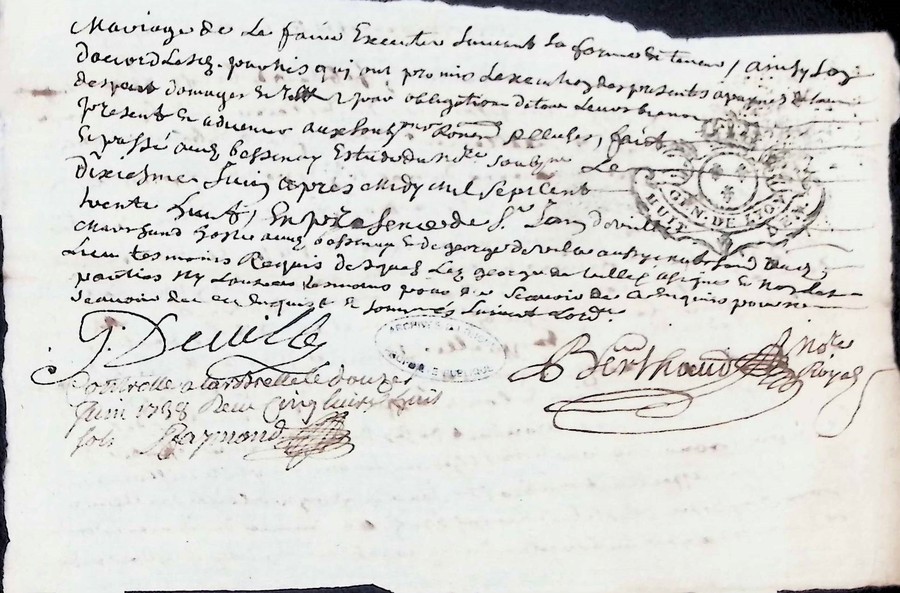 Mariage de Le faire Executer Suivant Sa forme & teneur / ainsy Loz
dacord Lesd. parties qui ont promis Lexecution des presents a payne de tous
despens domages & par obligation de tous Leurs biens
present & advenir aux soubmons Renon & Clauses, fait
Et passé aud bessenay Estude du No.re soubgne Le
Dixiesme Juin apres Midy Mil Sept Cent
trente huit, En presence de Sr. Jean deville
Marchand hoste aud bessenay & de george deville aussy marchand dud
Lieu tesmoins Requis desquels Led george deville a signe & non les
parties Ny Lautre tesmoins pour ne Scavoir de ce Enquis
de ce Enquis & sommes Suivant Lord.e
G. Deville
Berthaud No.re Royal
Controllé a Larbrelle le douze
Juin 1738 Reçu Cinq livres huit
sols Raymond
GEN. DE LYON
HUIT DEN.
ARCHIVES